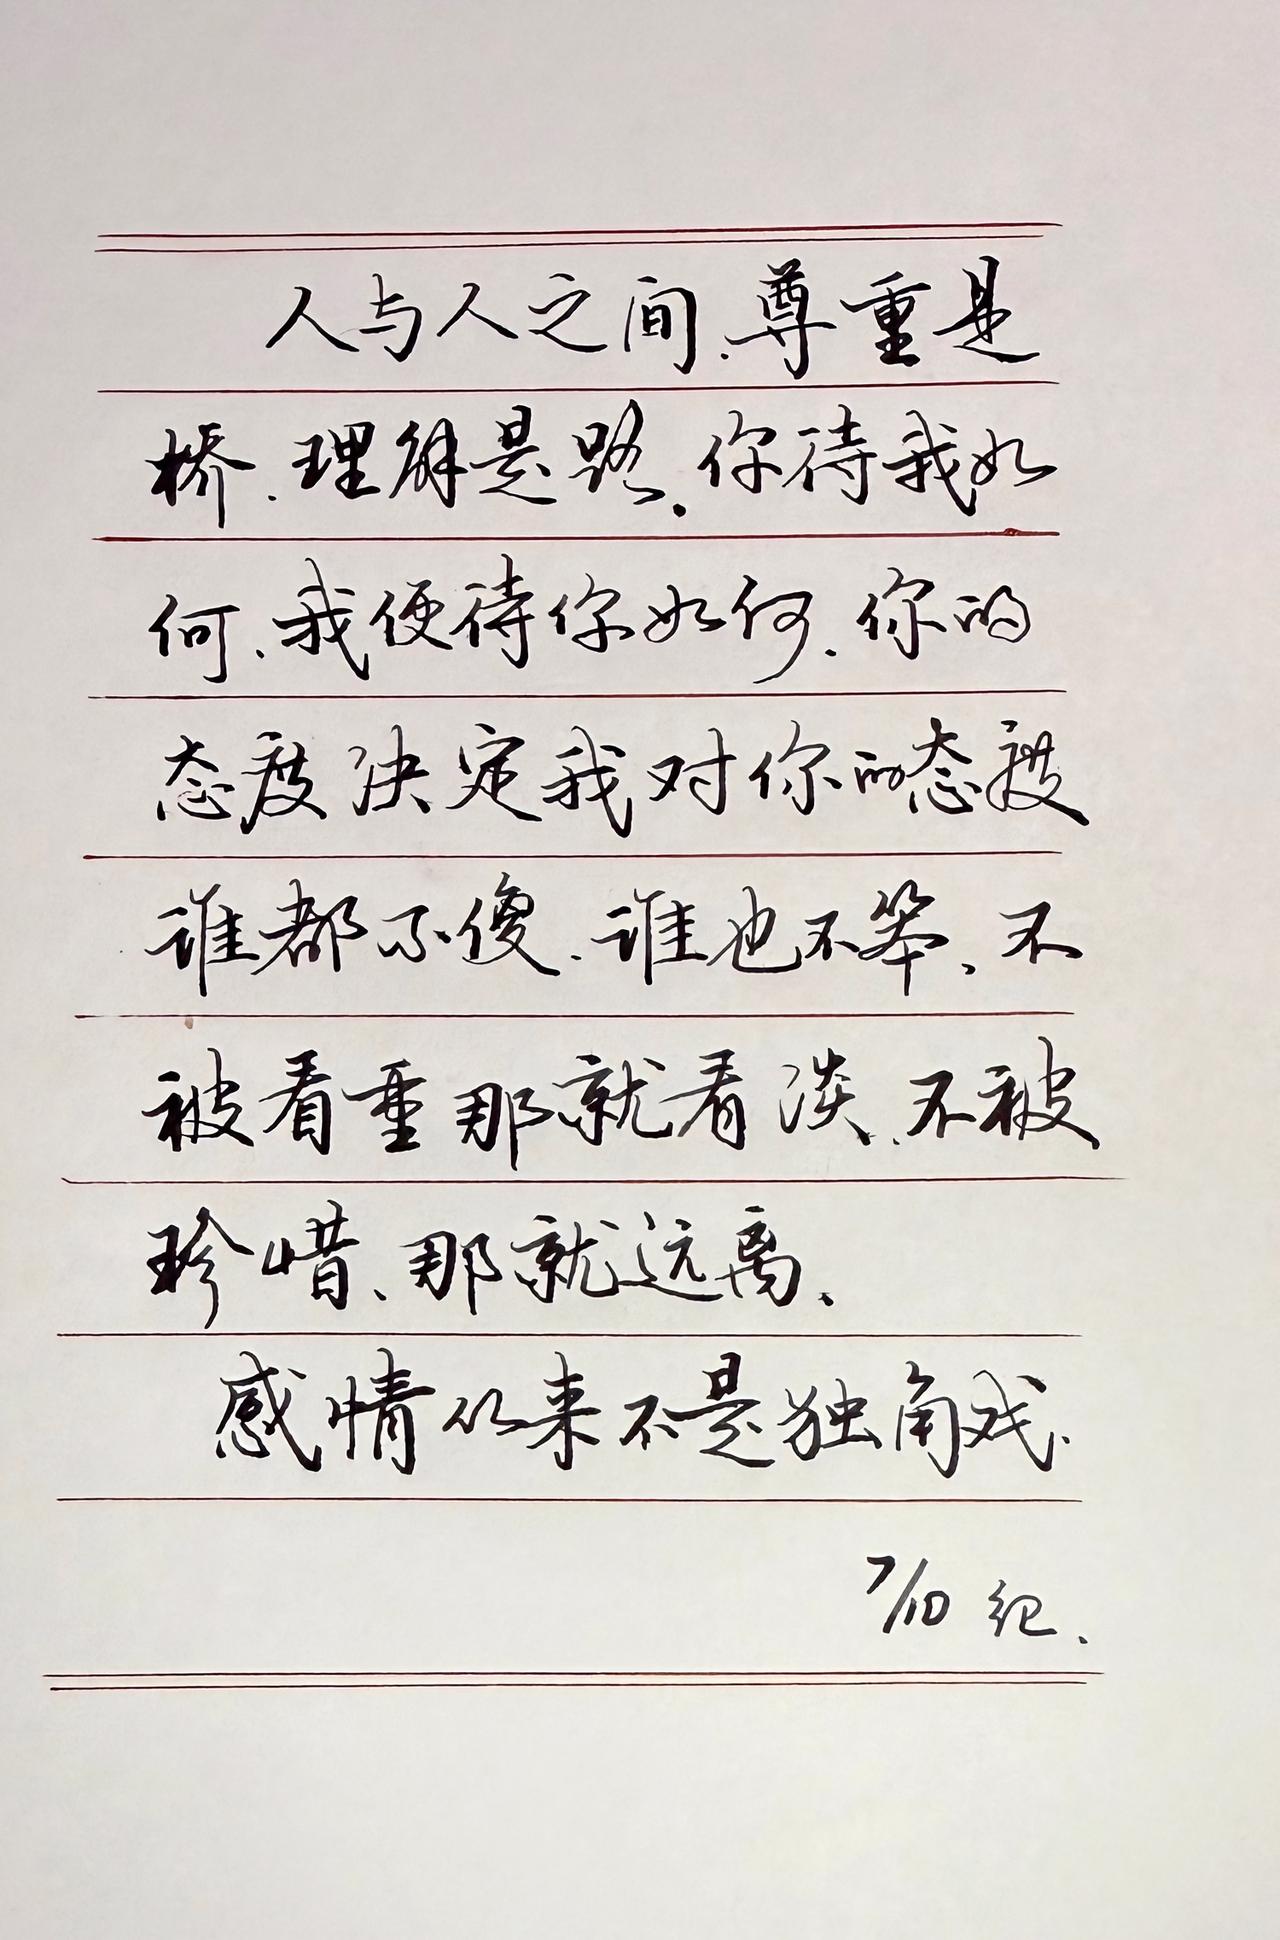 人与人之间、尊重是
桥、理解是路。你待我如
何、我便待你如何、你的
态度决定我对你的态度
谁都不傻、谁也不笨、不
被看重那就看淡、不被
珍惜、那就远离、
感情从来不是独角戏、
7/10 纪、